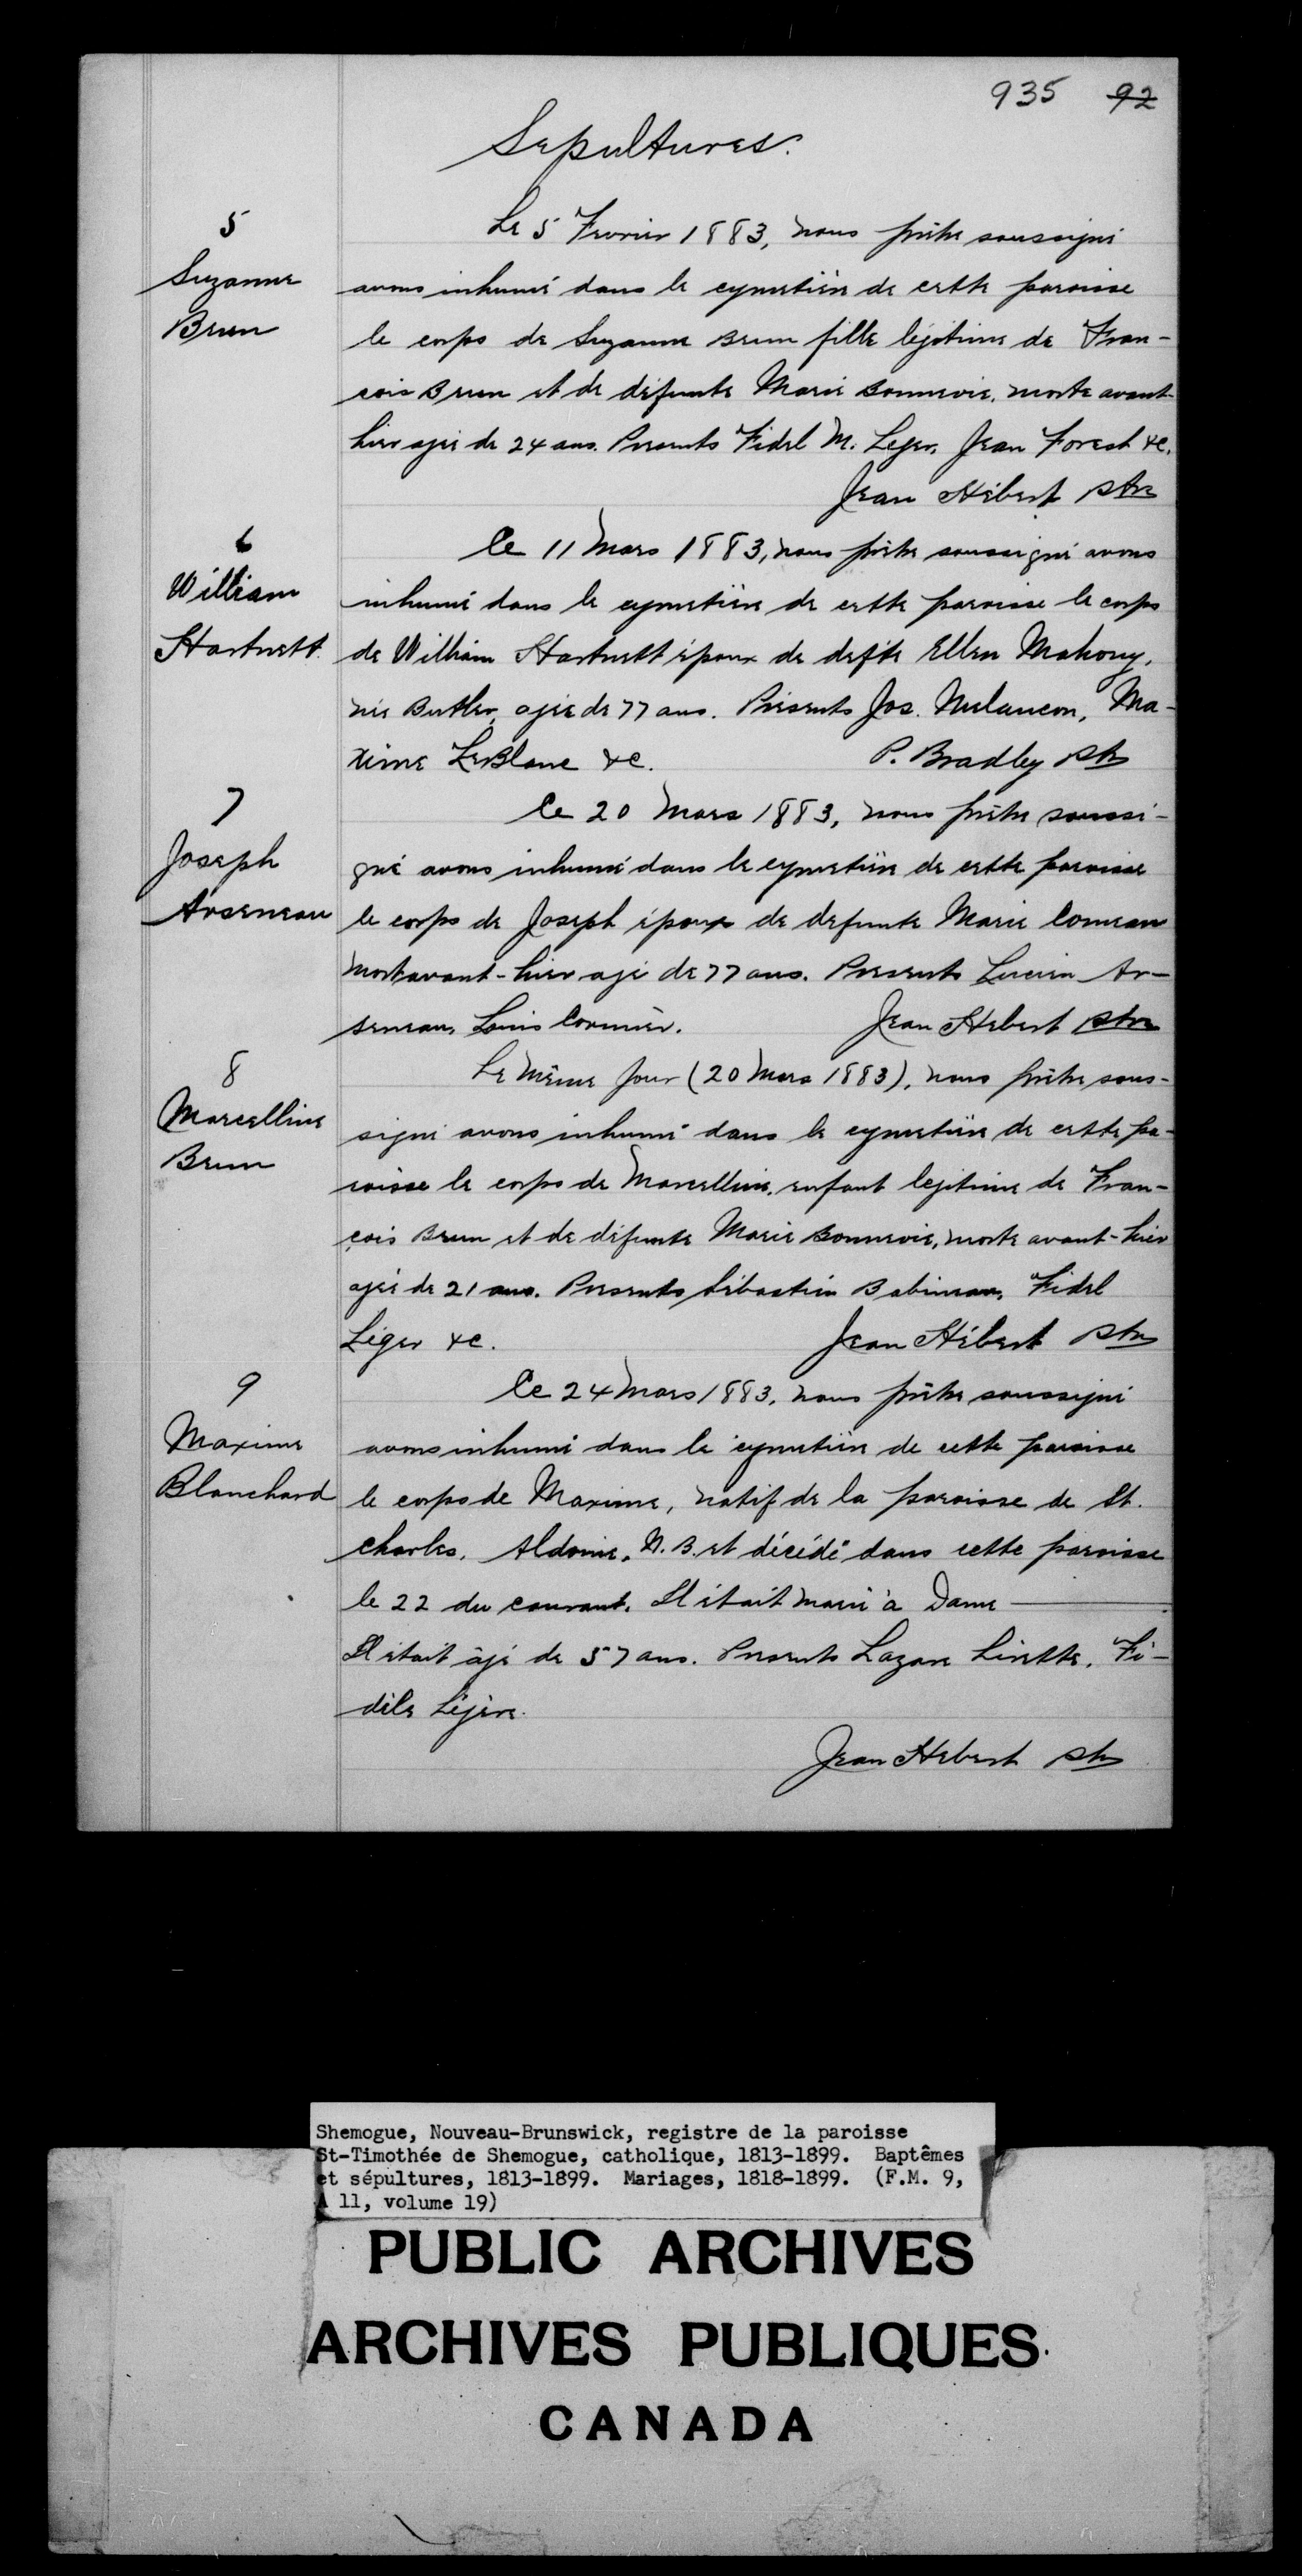 935 92
Sepultures.
5
Suzanne
Brun
Le 5 Fevrier 1883, nous prêtre soussigné
avons inhumé dans le cymetière de cette paroisse
le corps de Suzanne Brun fille légitime de Fran-
cois Brun et de défunte Marie Bonnevie, morte avant-
hier agée de 24 ans. Presents Fidel M. Leger, Jean Forest &c.
Jean Hébert Ptre
6
William
Hartnett
Le 11 Mars 1883, nous prêtre soussigné avons
inhumé dans le cymetière de cette paroisse le corps
de William Hartnett époux de defte Ellen Mahony,
née Butler, agée de 77 ans. Présents Jos. Melancon, Ma-
xime LeBlanc &c. P. Bradley Ptr
7
Joseph
Arseneau
Le 20 Mars 1883, nous prêtre soussi-
gné avons inhumé dans le cymetière de cette paroisse
le corps de Joseph époux de defunte Marie Comeau
mort avant-hier agé de 77 ans. Presents Lucien Ar-
seneau, Louis Cormier. Jean Hebert Ptre
8
Marcelline
Brun
Le même jour (20 Mars 1883), nous prêtre sous-
signé avons inhumé dans le cymetière de cette pa-
roisse le corps de Marcelline, enfant legitime de Fran-
çois Brun et de défunte Marie Bonnevie, morte avant-hier
agée de 21 ans. Presents Sébastien Babineau, Fidel
Léger &c. Jean Hébert Ptr
9
Maxime
Blanchard
Le 24 Mars 1883, nous prêtre soussigné
avons inhumé dans le cymetière de cette paroisse
le corps de Maxime, natif de la paroisse de St.
Charles, Aldouine, N.B. et décédé dans cette paroisse
le 22 du courant. Il était marié à Dame
Il était âgé de 57 ans. Presents Lazare Lirette, Fi-
dèle Légère.
Jean Hebert Ptr
Shemogue, Nouveau-Brunswick, registre de la paroisse
St-Timothée de Shemogue, catholique, 1813-1899. Baptêmes
et sépultures, 1813-1899. Mariages, 1818-1899. (F.M. 9,
A 11, volume 19)
PUBLIC ARCHIVES
ARCHIVES PUBLIQUES
CANADA